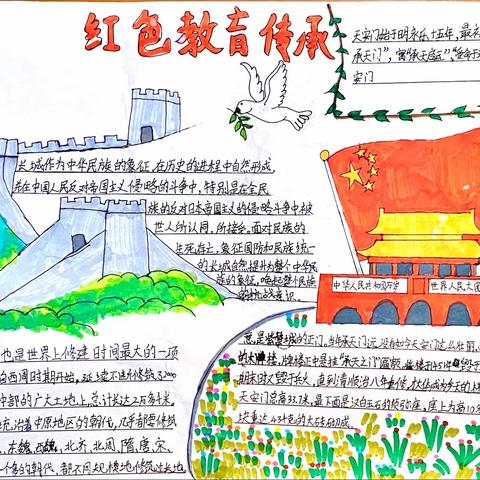 红色教育传承
天安门始于明永乐十五年,最初
承天门",寓"承天启运""受命于
安门
长城作为中华民族的象征,在历史的进程中自然形成,
在中国人民反对帝国主义侵略的斗争中,特别是在全民
族的反对日本帝国主义的侵略斗争中被
世人所认同,所接受。面对民族的
生死存亡,象征国防和民族统一
的长城自然提升为整个中华民
族的象征,唤起整个民族
的抗战意识。
中华人民共和国万岁
世界人民大团
也是世界上修建时间最大的一项
西周时期开始,延续不断修筑了2000
中部的广大土地上,总计长达2万多千米。
统治着中原地区的朝代,几乎都要修筑
东魏,西魏,北齐,北周,隋唐,宋
个多的朝代,都不同规模地修筑过长城,
的正门,当年承天门远没有如今天安门这么壮丽,
的大牌楼,牌楼正中悬挂"承天之门"匾额,
明末时又毁于兵火,直到清顺治八年重修,
天安门总高33.7米,最下面是汉白玉石的须弥座,
块重达4.3千克的大砖砌成